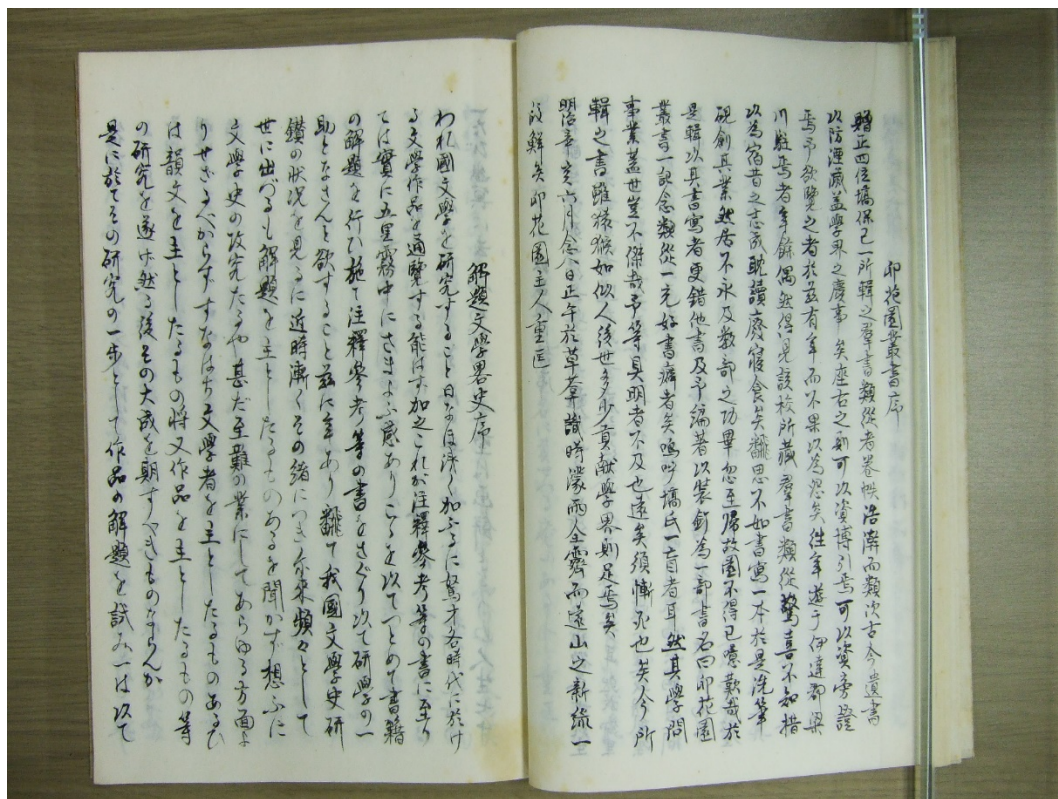 卯花園叢書序
贈正四位塙保己一所輯之羣書類從者卷帙浩瀚而類次古今遺書
以防湮滅益學界之慶事矣座右之則可以資博引焉可以資旁證
焉予欲覽之者於茲有年而不果以為怨矣往年遊于伊達郡梁
川駐焉者年餘偶然得見該校所藏羣書類從驚喜不知措
以為宿昔之志成耽讀廢寢食矣飜思不如書寫一本於是洗筆
硯創其業然居不永及數部之功畢忽至歸故園不得已噫歎哉於
是輯以其書寫者更錯他書及予編著以裝釘為一部書名曰卯花園
叢書一記念類從一充好書癖者矣嗚呼塙氏一盲者耳然其學問
事業蓋世豈不傑哉予等具明者不及也遠矣須慚死也矣今所
輯之書雖猿猴如似人後世多少貢献學界則足焉矣
明治辛亥六月念八日正午於草菴識時濛雨全霽而遠山之新綠一
段鮮矣卯花園主人重匡
解題文學畧史序
われ國文學を研究すること日なほ淺く加ふるに駑才各時代に於け
る文學作品を通覽する能はず加之これが注釋參考等の書に至り
ては實に五里霧中にさまよふ感ありこゝを以てつとめて書籍
の解題を行ひ施て注釋參考等の書をさぐり以て研學の一
助となさんと欲すること茲に年あり飜て我國文學史研
鑽の狀況を見るに近時漸くその緒につき尓来頻々として
世に出づるも解題を主としたるものあるを聞かず想ふに
文學史の攻究たるや甚だ至難の業にしてあらゆる方面よ
りせざるべからずすなはち文學者を主としたるものあるひ
は韻文を主としたるもの將又作品を主としたるもの等
の研究を遂け然る後その大成を期すべきものならんか
是に於てその研究の一歩として作品の解題を試み一は以て